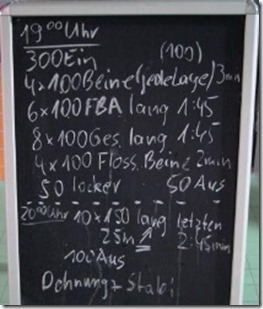 19⁰⁰ Uhr
300 Ein (100)
4x100 Beine (jede Lage) 3min
6x100 FBA lang 1:45
8x100 Ges. lang 1:45
4x100 Floss. Beine 2min
50 locker 50 Aus
20⁰⁰ Uhr 10x150 lang letzten
25m 2:45min
100 Aus
Dehnung + Stabi